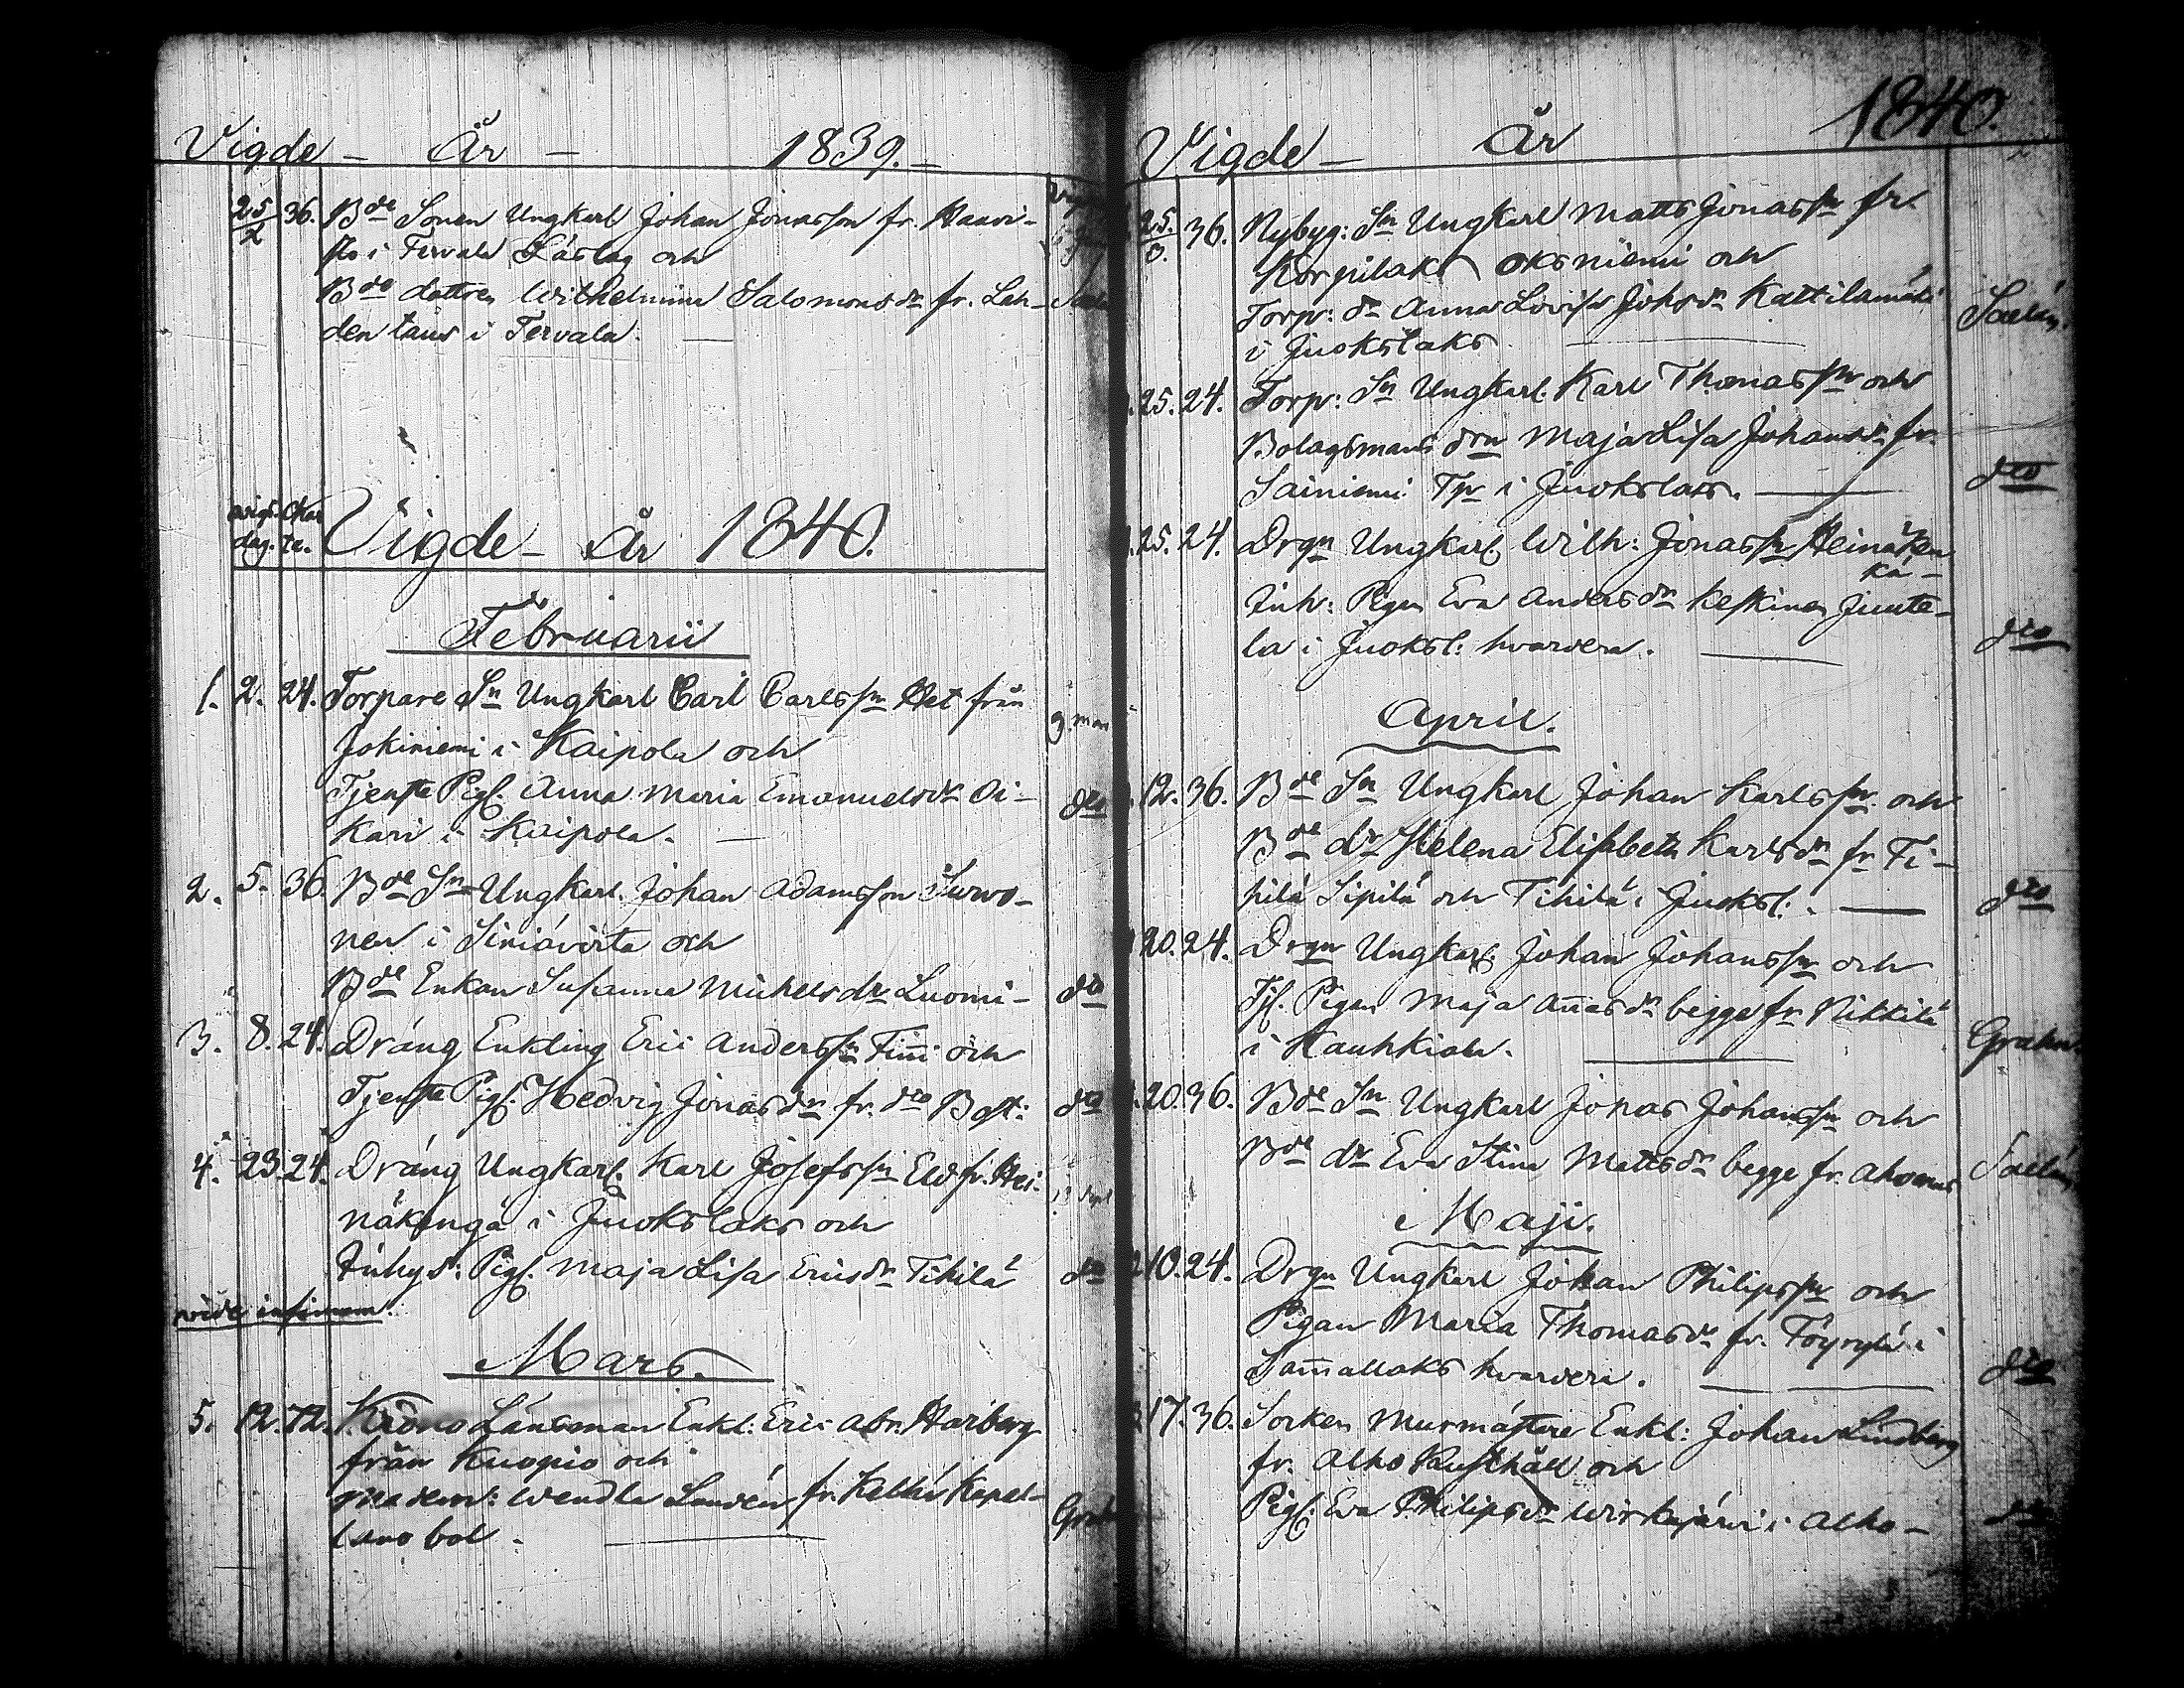 Vigde - År - 1839. -
25/2 36. Bde Sonen Ungkarl Johan Jonasson fr. Haavi-
sto i Tervala Låslag och
Bde dottren Wilhelmina Salomonsdr fr. Lah-
dentaus i Tervala. —
vigs. Char
dag. te. Vigde - år 1840.
Februarii
1. 2. 24. Torpare Sn Ungkarl Carl Carlssn Het från
Jokiniemi i Kaipola och
Tjenste Pig. Anna Maria Emanuelsdr Oi-
kari i Kaipola. — dto
2. 5. 36 Bde Sn Ungkarl Johan Adamsson Survo-
nen i Siniävirta och
Bde Enkan Susanna Michelsdr Luomi- dto
3. 8. 24. Dräng Enkling Eric Anderssn Finni och
Tjenste Pig. Hedvig Jonasdr fr. dto Bost: dto
4. 23. 24. Dräng Ungkarl. Karl Josefssn Eld fr. Hei-
näkängä i Juokslaks och
Inhys: Pig. Maja Lisa Ericsdr Tihilä dto
vide infimam.
Mars.
5. 12. 72. Krono Länsman Enkl: Eric Abr. Harberg
från Kuopio och
Madem: Wendla Landén fr. Kapel-
lans bol. —
Vigde - År 1840.
25/3. 36. Nybyg: Sn Ungkarl Matts Jonassn fr.
Korpilaks Oksniemi och
Torp: dr Anna Lovisa Johsdr Kattilamäki
i Juokslaks — Saelán.
25. 24. Torp: Sn Ungkarl Karl Thomassn och
Bolagsmans drn Maja Lisa Johansdr fr.
Sainiemi Tp i Juokslaks. — dto
25. 24. Drgn Ungkarl Wilh: Jonassn Heinäken
kä-
Inh: Pigan Eva Andersdr Keskinen Junte-
la i Juoksl: hvardera. — dto
April.
12. 36. Bde Sn Ungkarl Johan Karlssn och
Bde dr Helena Elisabeth Karlsdr fr Ti-
hilä Sipilä och Tihilä i Juoksl: — dto
20. 24. Drgn Ungkarl Johan Johanssn och
Tj. Pigan Maja Annasdr begge fr Nikkilä
i Hauhkiala. — Grahn.
20. 36. Bde Sn Ungkarl Jonas Johanssn och
Bde dr Eva Stina Mattsdr begge fr. Ahvenus Saelán,
Maji.
10. 24. Drgn Ungkarl Johan Philipssn och
Pigan Maria Thomasdr fr. Töyrylä i
Sam̅allaks hvardera. — dto
17. 36. Socken Murmästare Enkl: Johan Lindberg
fr. Alho Rusthåll och
Pig. Eva Philipsdr Wirkajärvi i Alho- dto